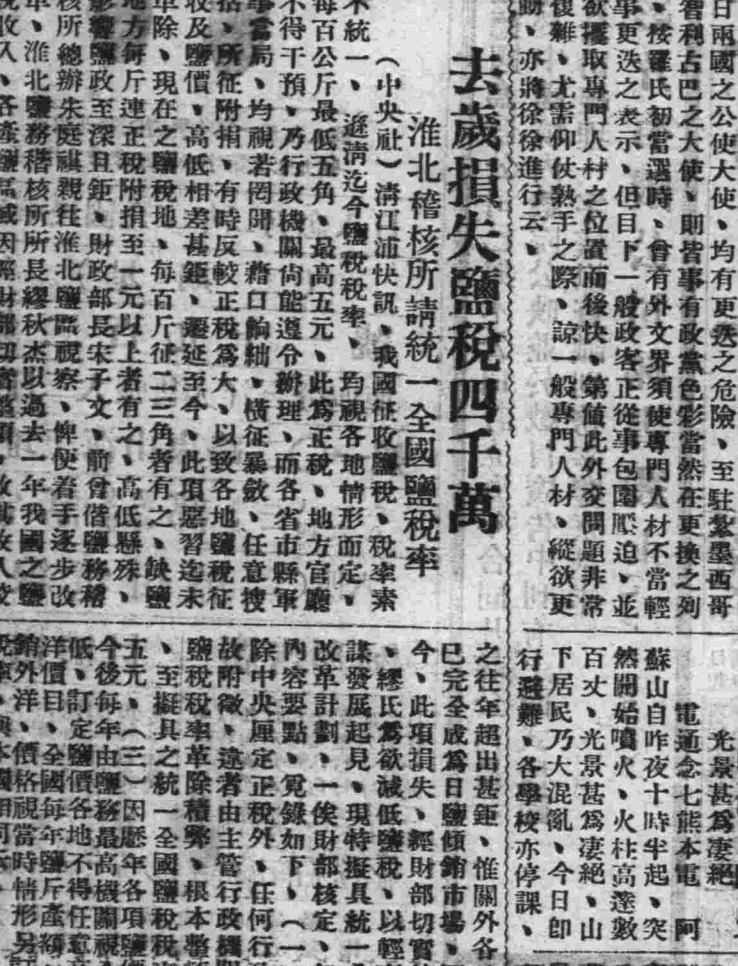 日兩國之公使大使、均有更迭之危險、至駐紮墨西哥
智利古巴之大使、則皆事有政黨色彩當然在更換之列
、按羅氏初當選時、曾有外交界須使專門人材不當輕
事更迭之表示、但目下一般政客正從事包圍壓迫、並
欲攫取專門人材之位置而後快、第値此外交問題非常
複雜、尤需仰仗熟手之際、諒一般專門人材、縱欲更
動、亦將徐徐進行云、
去歲損失鹽稅四千萬
淮北稽核所請統一全國鹽稅率
（中央社）淸江浦快訊、我國征收鹽稅、稅率素
不統一、遜淸迄今鹽稅稅率、均視各地情形而定、
每百公斤最低五角、最高五元、此爲正稅、地方官廳
不得干預、乃行政機關尙能遵令辦理、而各省市縣軍
事當局、均視若罔聞、藉口餉絀、橫征暴斂、任意搜
括、所征附捐、有時反較正稅爲大、以致各地鹽稅征
收及鹽價、高低相差甚鉅、遷延至今、此項惡習迄未
革除、現在之鹽稅地、每百斤征二三角者有之、缺鹽
地方每斤連正稅附捐至一元以上者有之、高低懸殊、
影響鹽政至深且鉅、財政部長宋子文、前曾偕鹽務稽
核所總辦朱庭祺親往淮北鹽區視察、俾便着手逐步改
革、淮北鹽務稽核所所長繆秋杰以過去一年我國之鹽
稅收入、各產鹽區域因經財部切實整頓、故其收入較
光景甚爲凄絕
電通念七熊本電　阿
蘇山自昨夜十時半起、突
然開始噴火、火柱高達數
百丈、光景甚爲凄絕、山
下居民乃大混亂、今日卽
行避難、各學校亦停課、
之往年超出甚鉅、惟關外各
已完全成爲日鹽傾銷市場、
今、此項損失、經財部切實
、繆氏爲欲減低鹽稅、以輕
謀發展起見、現特擬具統一
改革計劃、一俟財部核定、
內容要點、覓錄如下、（一
除中央厘定正稅外、任何行
故附徵、違者由主管行政機關
鹽稅稅率革除積弊、根本整
、至擬具之統一全國鹽稅稅
五元、（三）因懸年各項鹽
今後每年由鹽務最高機關視
低、訂定鹽價各地不得任意
洋價目、全國每年鹽斤產額
銷外洋、價格視當時情形另訂